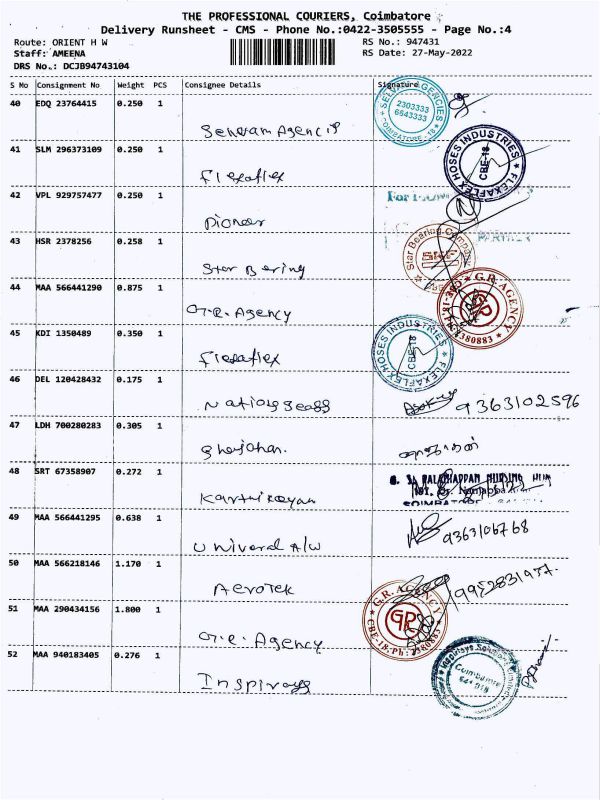 THE PROFESSIONAL COURIERS, Coimbatore
Delivery Runsheet - CMS - Phone No.:0422-3505555 - Page No.:4
Route: ORIENT H W
Staff: AMEENA
DRS No.: DCJB94743104
RS No.: 947431
RS Date: 27-May-2022
S No Consignment No Weight PCS Consignee Details Signature
40 EDQ 23764415 0.250 1
2303333
6643333
41 SLM 296373109 0.250 1
Flexaflex
FLEXAFLEX HOSES INDUSTRIES CBE-18
42 VPL 929757477 0.250 1
Pioneer
43 HSR 2378256 0.258 1
Star Bering
Star Bearing Company
44 MAA 566441290 0.875 1
G.R. Agency
G.R. AGENCY
45 KDI 1350489 0.350 1
Flexaflex
FLEXAFLEX HOSES INDUSTRIES CBE-18
46 DEL 120428432 0.175 1
9363102596
47 LDH 700280283 0.305 1
48 SRT 67358907 0.272 1
Karthikeyan
49 MAA 566441295 0.638 1
A/W
9363106768
50 MAA 566218146 1.170 1
Aerotek
51 MAA 290434156 1.800 1
G.R. Agency
G.R. AGENCY CBE-18-Ph: 2380883
52 MAA 940183405 0.276 1
Coimbatore